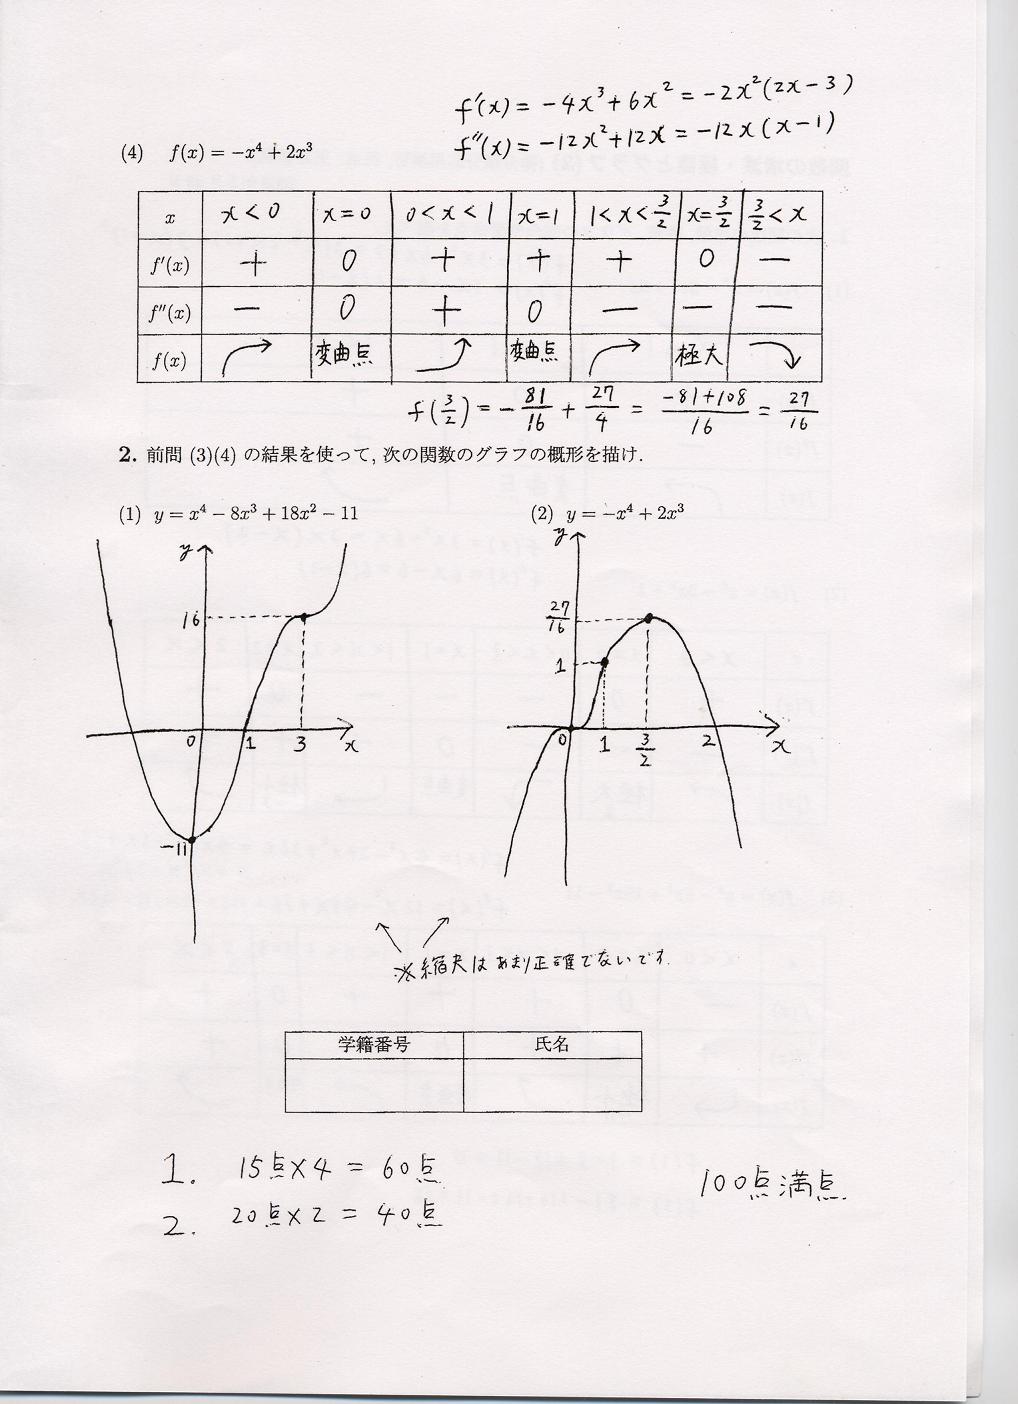 f'(x) = -4x³+6x² = -2x²(2x-3)
f''(x) = -12x²+12x = -12x(x-1)
(4) f(x) = -x⁴ + 2x³
x x<0 x=0 0<x<1 x=1 1<x<3/2 x=3/2 3/2<x
f'(x) + 0 + + + 0 −
f''(x) − 0 + 0 − − −
f(x) 変曲点 変曲点 極大
f(3/2) = -81/16 + 27/4 = (-81+108)/16 = 27/16
2. 前問 (3)(4) の結果を使って, 次の関数のグラフの概形を描け.
(1) y = x⁴ − 8x³ + 18x² − 11 (2) y = −x⁴ + 2x³
y
16
0 1 3 x
-11
y
27/16
1
0 1 3/2 2 x
※縮尺はあまり正確でないです.
学籍番号 氏名
1. 15点×4 = 60点
2. 20点×2 = 40点
100点満点